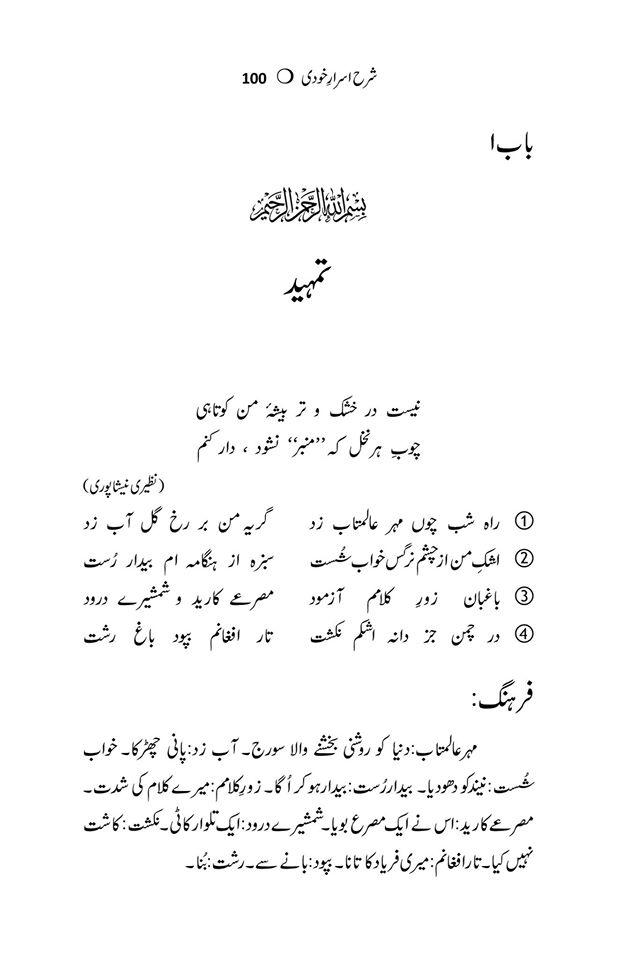 شرح اسرارِ خودی ❍ 100
باب ۱
بِسْمِ اللهِ الرَّحْمٰنِ الرَّحِيْمِ
تمہید
نیست در خشک و تر بیشۂ من کوتاہی
چوبِ ہر نخل کہ ’’منبر‘‘ نشود ، دار کنم
(نظیری نیشاپوری)
① راہ شب چوں مہر عالمتاب زد گریہ من بر رخ گل آب زد
② اشکِ من از چشمِ نرگس خواب شُست سبزہ از ہنگامہ ام بیدار رُست
③ باغبان زورِ کلامم آزمود مصرعے کارید و شمشیرے درود
④ در چمن جز دانہ اشکم نکشت تار افغانم بپود باغ رشت
فرہنگ:
مہر عالمتاب: دنیا کو روشنی بخشنے والا سورج۔ آب زد: پانی چھڑکا۔ خواب
شُست: نیند کو دھو دیا۔ بیدار رُست: بیدار ہو کر اُگا۔ زورِ کلامم: میرے کلام کی شدت۔
مصرعے کارید: اس نے ایک مصرع بویا۔ شمشیرے درود: ایک تلوار کاٹی۔ نکشت: کاشت
نہیں کیا۔ تار افغانم: میری فریاد کا تانا۔ بپود: بانے سے۔ رشت: بُنا۔